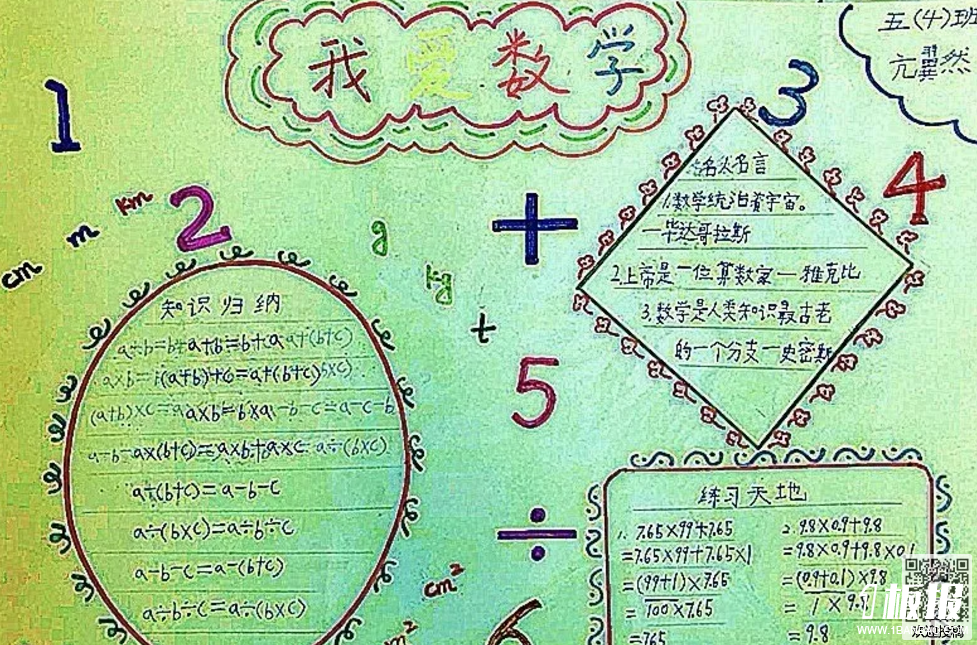 我爱数学
五(4)班
亢翼然
1
2
3
4
5
6
cm m km
g
kg
t
+
÷
cm²
名人名言
1.数学统治着宇宙。
—毕达哥拉斯
2.上帝是一位算数家—雅克比
3.数学是人类知识最古老
的一个分支—史密斯
知识归纳
a+b=b+a
(a+b)+c=a+(b+c)
a×b=b×a
a×(b+c)=a×b+a×c
a÷(b+c)=a-b-c
a÷(b×c)=a÷b÷c
a-b-c=a-(b+c)
a÷b÷c=a÷(b×c)
练习天地
1. 7.65×99+7.65
=7.65×99+7.65×1
=(99+1)×7.65
=100×7.65
=765
2. 9.8×0.9+9.8
=9.8×0.9+9.8×0.1
=(0.9+0.1)×9.8
=1×9.8
=9.8